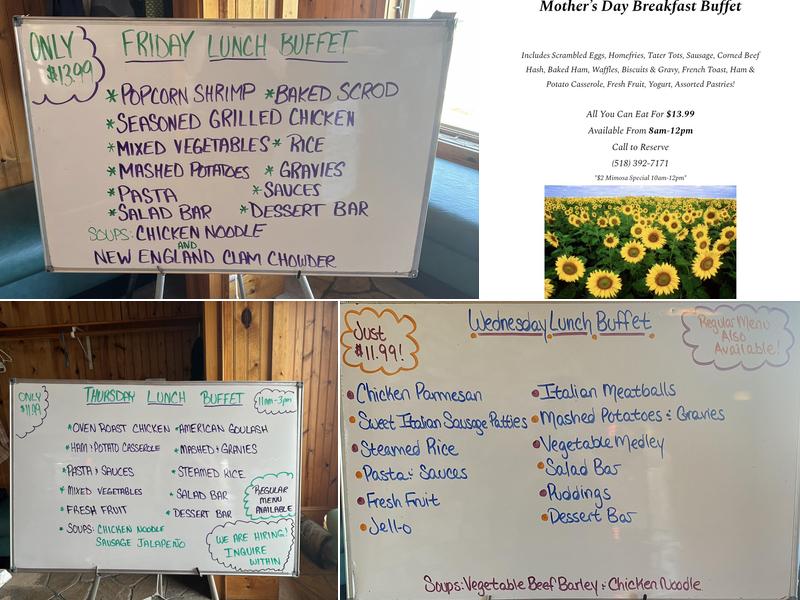 ONLY
$13.99
FRIDAY LUNCH BUFFET
*POPCORN SHRIMP *BAKED SCROD
*SEASONED GRILLED CHICKEN
*MIXED VEGETABLES *RICE
*MASHED POTATOES *GRAVIES
*PASTA *SAUCES
*SALAD BAR *DESSERT BAR
SOUPS: CHICKEN NOODLE
AND
NEW ENGLAND CLAM CHOWDER
Mother's Day Breakfast Buffet
Includes Scrambled Eggs, Homefries, Tater Tots, Sausage, Corned Beef
Hash, Baked Ham, Waffles, Biscuits & Gravy, French Toast, Ham &
Potato Casserole, Fresh Fruit, Yogurt, Assorted Pastries!
All You Can Eat For $13.99
Available From 8am-12pm
Call to Reserve
(518) 392-7171
*$2 Mimosa Special 10am-12pm*
ONLY
$11.99
THURSDAY LUNCH BUFFET
11am-3pm
*OVEN ROAST CHICKEN *AMERICAN GOULASH
*HAM & POTATO CASSEROLE *MASHED & GRAVIES
*PASTA & SAUCES *STEAMED RICE
*MIXED VEGETABLES *SALAD BAR
*FRESH FRUIT *DESSERT BAR
*SOUPS: CHICKEN NOODLE
SAUSAGE JALAPEÑO
REGULAR
MENU
AVAILABLE
WE ARE HIRING!
INQUIRE
WITHIN
Just
$11.99!
Wednesday Lunch Buffet
Regular Menu
Also
Available!
•Chicken Parmesan •Italian Meatballs
•Sweet Italian Sausage Patties •Mashed Potatoes & Gravies
•Steamed Rice •Vegetable Medley
•Pasta & Sauces •Salad Bar
•Fresh Fruit •Puddings
•Jell-o •Dessert Bar
Soups: Vegetable Beef Barley & Chicken Noodle